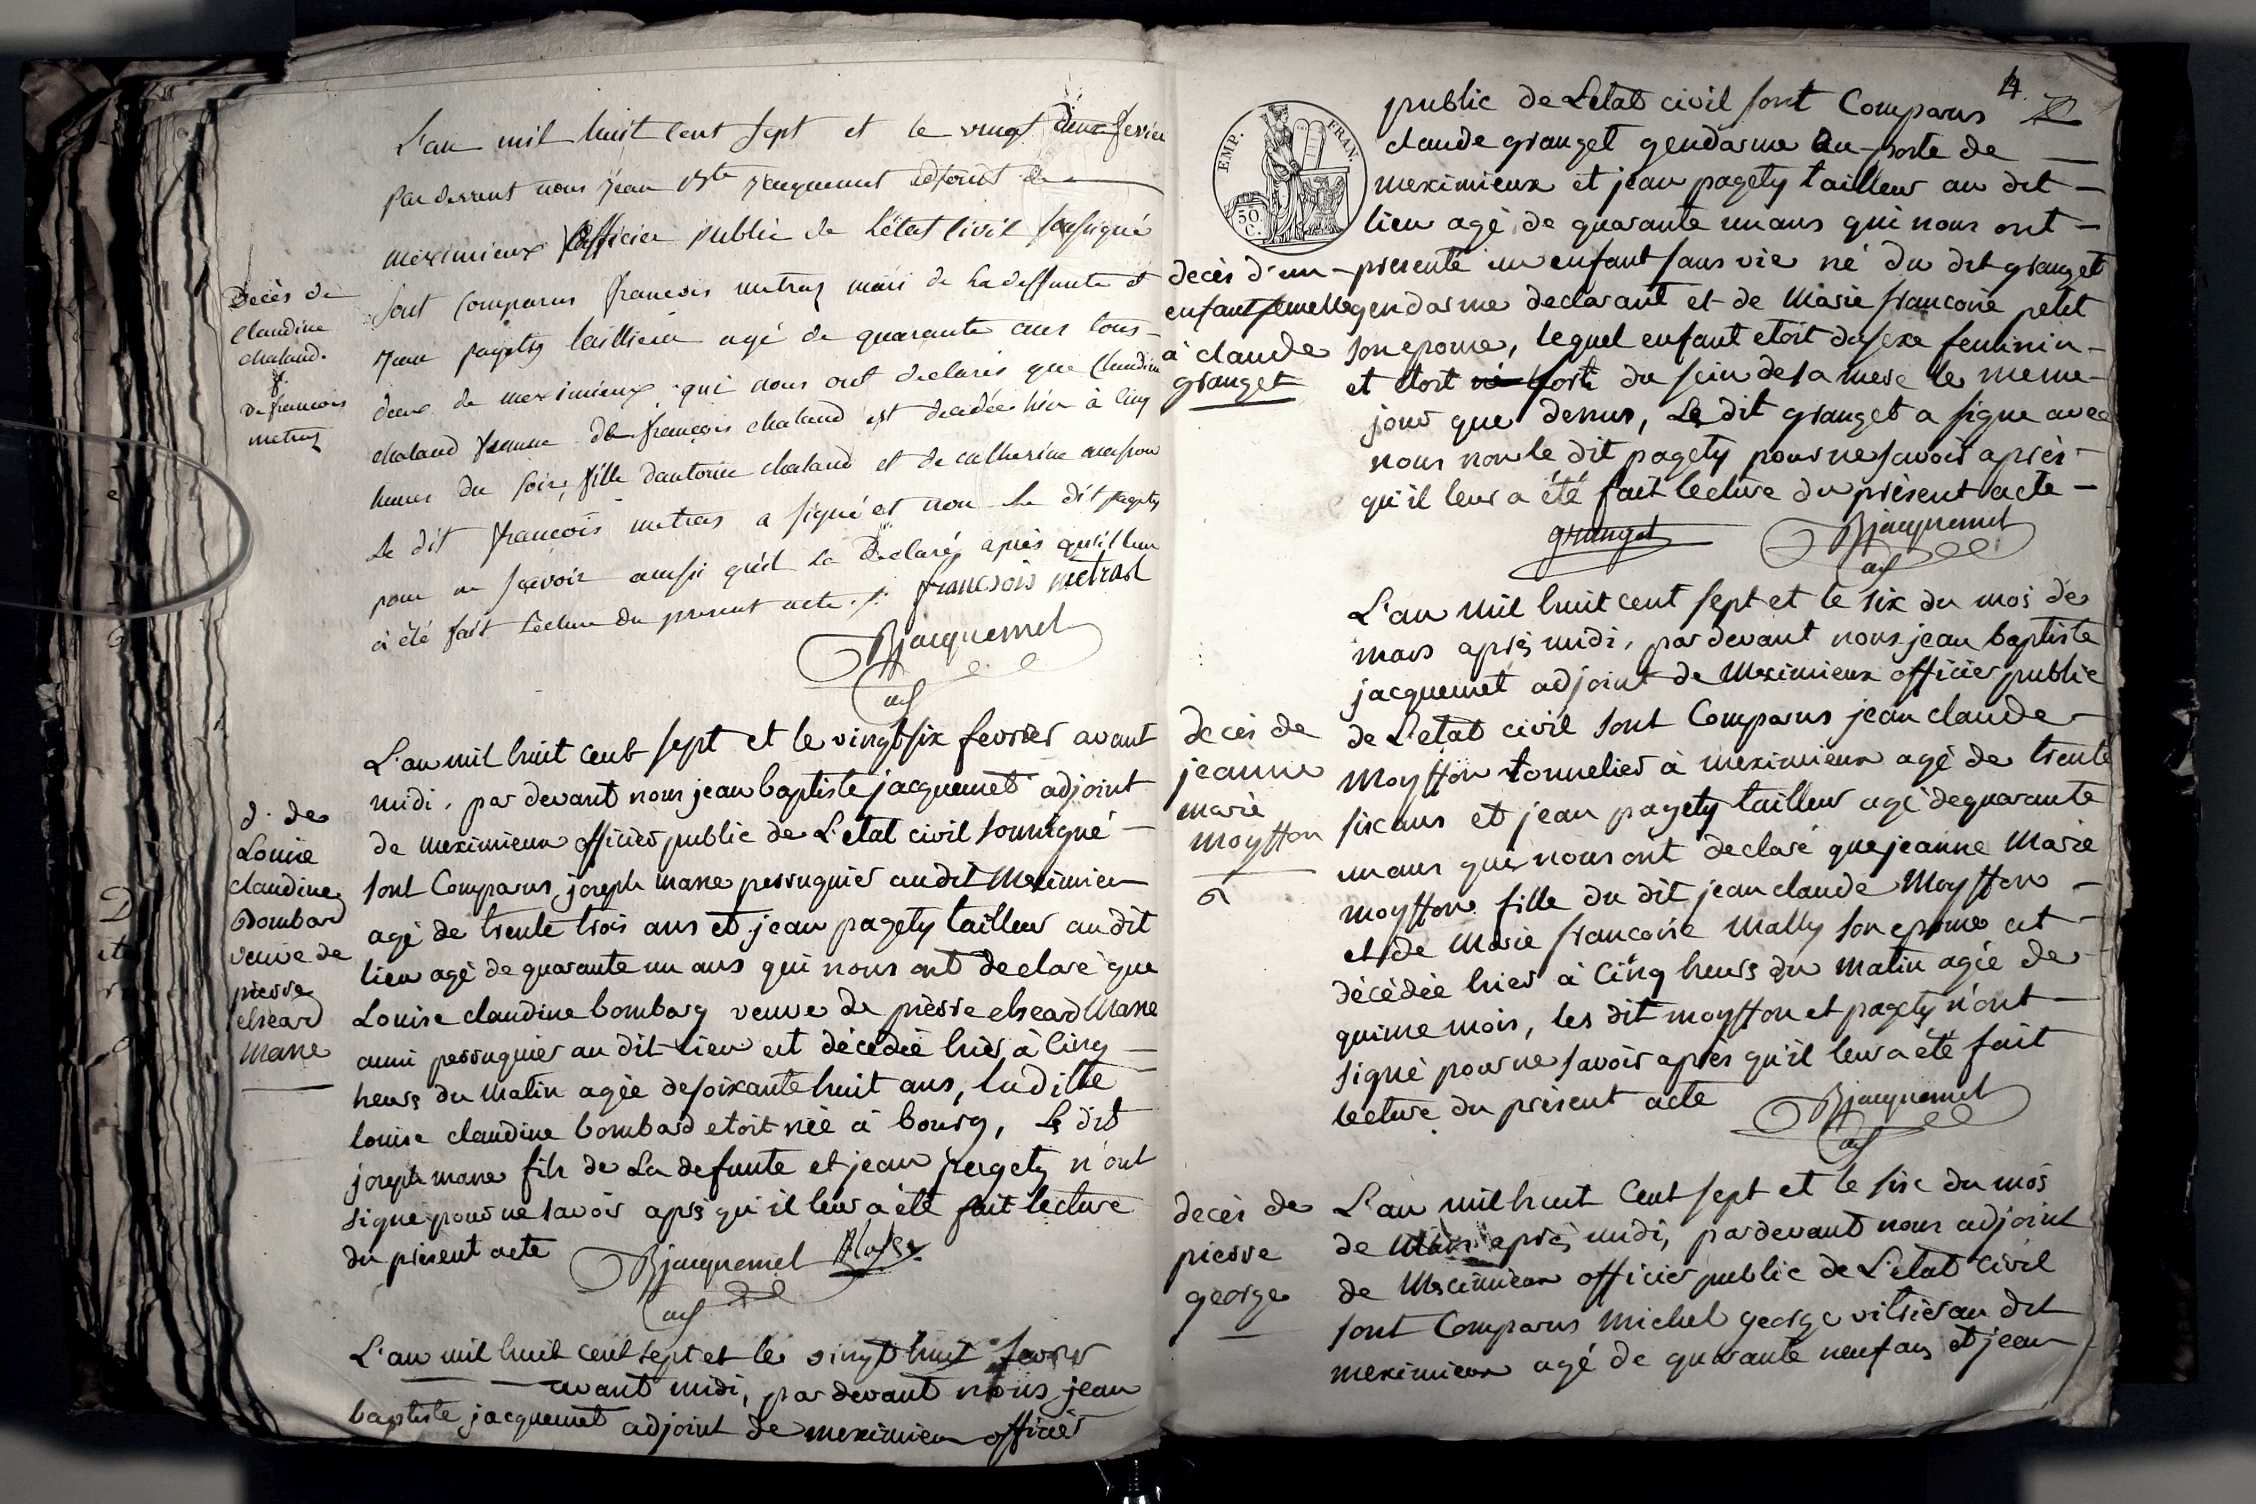 L'an mil huit cent sept et le vingt deux fevrier
par devant nous jean Bte jacquemet adjoint de
meximieux officier public de L'état Civil soussigné
Decès de
Claudine
chaland.
f.
de francois
metraz
sont comparus francois metraz mari de la deffunte et
jean pagety taillieur agé de quarante ans tous
deux de meximieux, qui nous ont declarés que Claudine
chaland femme de françois chaland est decedée hier à cinq
heures du soir, fille d'antoine chaland et de catherine
le dit francois metras a signé et non le dit pagety
pour ne sçavoir ainsi qu'il l'a Declaré, après qu'il leur
à été fait Lecture du present acte ./. francois métras
Bjacquemet
adj
L'an mil huit cent sept et le vingt six fevrier avant
midi, par devant nous jean baptiste jacquemet adjoint
de meximieux officier public de L'etat civil soussigné
d. de
Louise
claudine
Bombard
veuve de
pierre
elzeard
Masse
sont Comparus joseph masse perruquier audit Meximieu
agé de trente trois ans et jean pagety tailleur au dit
lieu agé de quarante un ans qui nous ont declaré que
Louise claudine bombarg veuve de pièrre elzeard Masse
aussi perruquier au dit Lieu est décédée hier à cinq
heurs du matin agée de soixante huit ans, la ditte
louise claudine bombard etoit née à bourg, Le dit
joseph masse fils de La defunte et jean pagety n'ont
signe pour ne savoir après qu'il leur a été fait lecture
du present acte Bjacquemet Masse
adj
L'an mil huit cent sept et le vingt huit fevrier
avant midi, par devant nous jean
baptiste jacquemet adjoint de meximieu officier
4
EMP. FRAN.
50.
C.
public de L'etat civil sont Comparus
claude granget gendarme au poste de
meximieux et jean pagety tailleur au dit
lieu agé de quarante un ans qui nous ont
decès d'un
enfant femelle
à claude
granget
presenté un enfant sans vie né du dit granget
gendarme declarant et de Marie francoise petit
son epouse, lequel enfant etoit du sexe feminin
et etoit né sorti du sein de sa mere le meme
jour que dessus, Le dit granget a signe avec
nous non le dit pagety pour ne savoir après
qu'il leur a été fait lecture du présent acte
granget Bjacquemet
adj
L'an mil huit cent sept et le six du mois de
mars après midi, par devant nous jean baptiste
jacquemet adjoint de Meximieux officier public
decès de
jeanne
marie
moiffon
de L'etat civil sont Comparus jean claude
Moyffon tonnelier à meximieux agé de trente
six ans et jean pagety tailleur agé de quarante
un ans qui nous ont declaré que jeanne Marie
moyffon fille du dit jean claude Moyffon
et de Marie francoise Mally son epouse est
décédée hier à cinq heurs du matin agée de
quinze mois, les dit moyffon et pagety n'ont
signé pour ne savoir après qu'il leur a été fait
lecture du présent acte Bjacquemet
adj
decès de
pierre
george
L'an mil huit Cent sept et le six du mois
de Mars après midi, par devant nous adjoint
de Meximieux officier public de L'etat civil
sont Comparus Michel george vitrier au dit
meximieux agé de quarante neuf ans et jean